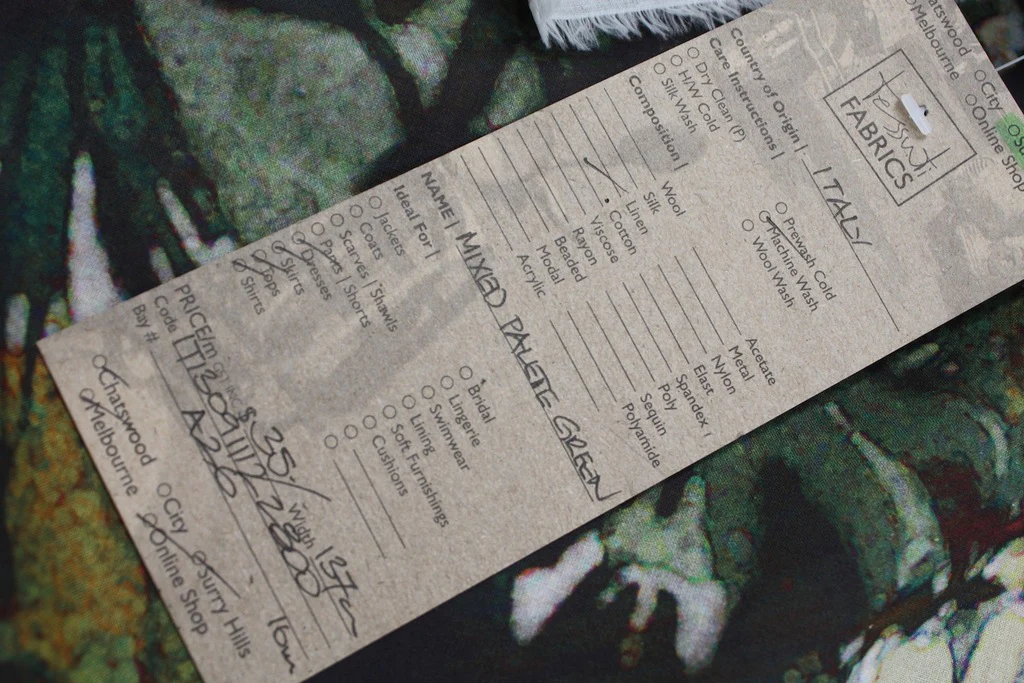 tessuti
FABRICS
Country of Origin | ITALY
Care Instructions |
Dry Clean (P)
H/W Cold
Silk Wash
Prewash Cold
Machine Wash
Wool Wash
Composition |
Wool
Silk
Linen
Cotton
Viscose
Rayon
Beaded
Modal
Acrylic
Acetate
Metal
Nylon
Elast
Spandex /
Poly
Sequin
Polyamide
NAME | MIXED PALETTE GREEN
Ideal For |
Jackets
Coats
Scarves | Shawls
Pants | Shorts
Dresses
Skirts
Tops
Shirts
Bridal
Lingerie
Swimwear
Lining
Soft Furnishings
Cushions
PRICE/m $ 35.
Width 137c
Code
Bay # A26
16m
Chatswood
Melbourne
City
Surry Hills
Online Shop
atswood
Melbourne
City
Online Shop